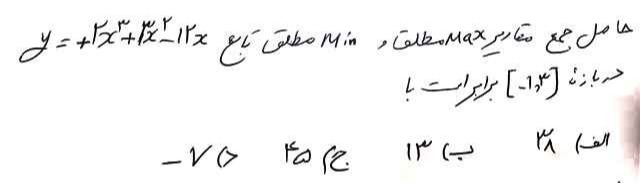 حاصل جمع مقادیر Max مطلق و Min مطلق تابع y = +۲x³+۳x²−۱۲x
در بازهٔ [-۱,۳] برابر است با
الف) ۳۸ ب) ۱۳ ج) ۴۵ د) −۷